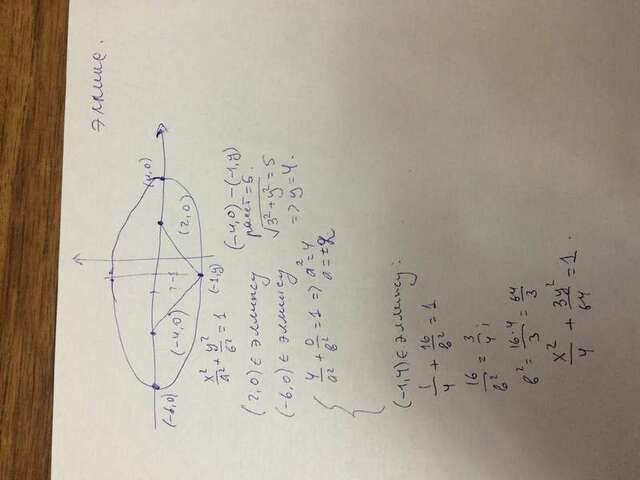 эллипс.
(-6,0)
(-4,0)
-1
(2,0)
(4,0)
(-1,y)
x²/a² + y²/b² = 1
(2,0) ∈ эллипсу
(-6,0) ∈ эллипсу
4/a² + 0/b² = 1 => a² = 4
a = ±2
(-4,0) - (-1,y)
расст = 5.
√(3² + y²) = 5
=> y = 4.
(-1,4) ∈ эллипсу:
1/4 + 16/b² = 1
16/b² = 3/4;
b² = 16·4/3 = 64/3
x²/4 + 3y²/64 = 1.